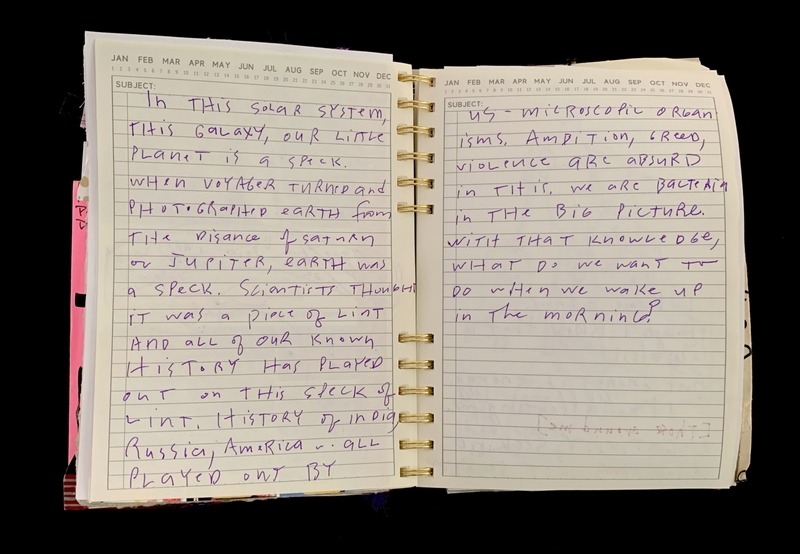 JAN FEB MAR APR MAY JUN JUL AUG SEP OCT NOV DEC
1 2 3 4 5 6 7 8 9 10 11 12 13 14 15 16 17 18 19 20 21 22 23 24 25 26 27 28 29 30 31
SUBJECT:
In THIS SOLAR SYSTEM,
THIS GALAXY, OUR LITTLE
PLANET IS a SPECK.
WHEN VOYAGER TURNED and
PHOTOGRAPHED EARTH from
THE DISANCE of SATURN
or JUPITER, EARTH WAS
a SPECK. Scientists THOUGHT
IT WAS a PIECE of LINT
AND ALL OF OUR KNOWN
HISTORY HAS PLAYED
OUT on THIS SPECK of
LINT. HISTORY of INDIA,
RUSSIA, AMERICA ... ALL
PLAYED OUT BY
JAN FEB MAR APR MAY JUN JUL AUG SEP OCT NOV DEC
1 2 3 4 5 6 7 8 9 10 11 12 13 14 15 16 17 18 19 20 21 22 23 24 25 26 27 28 29 30 31
SUBJECT:
US - MICROSCOPIC ORGAN
ISMS. AMBITION, GREED,
VIOLENCE ARE ABSURD
in THIS. WE ARE BACTERIA
in THE BIG PICTURE.
WITH THAT KNOWLEDGE,
WHAT DO WE WANT TO
DO WHEN WE WAKE UP
in THE MORNING?